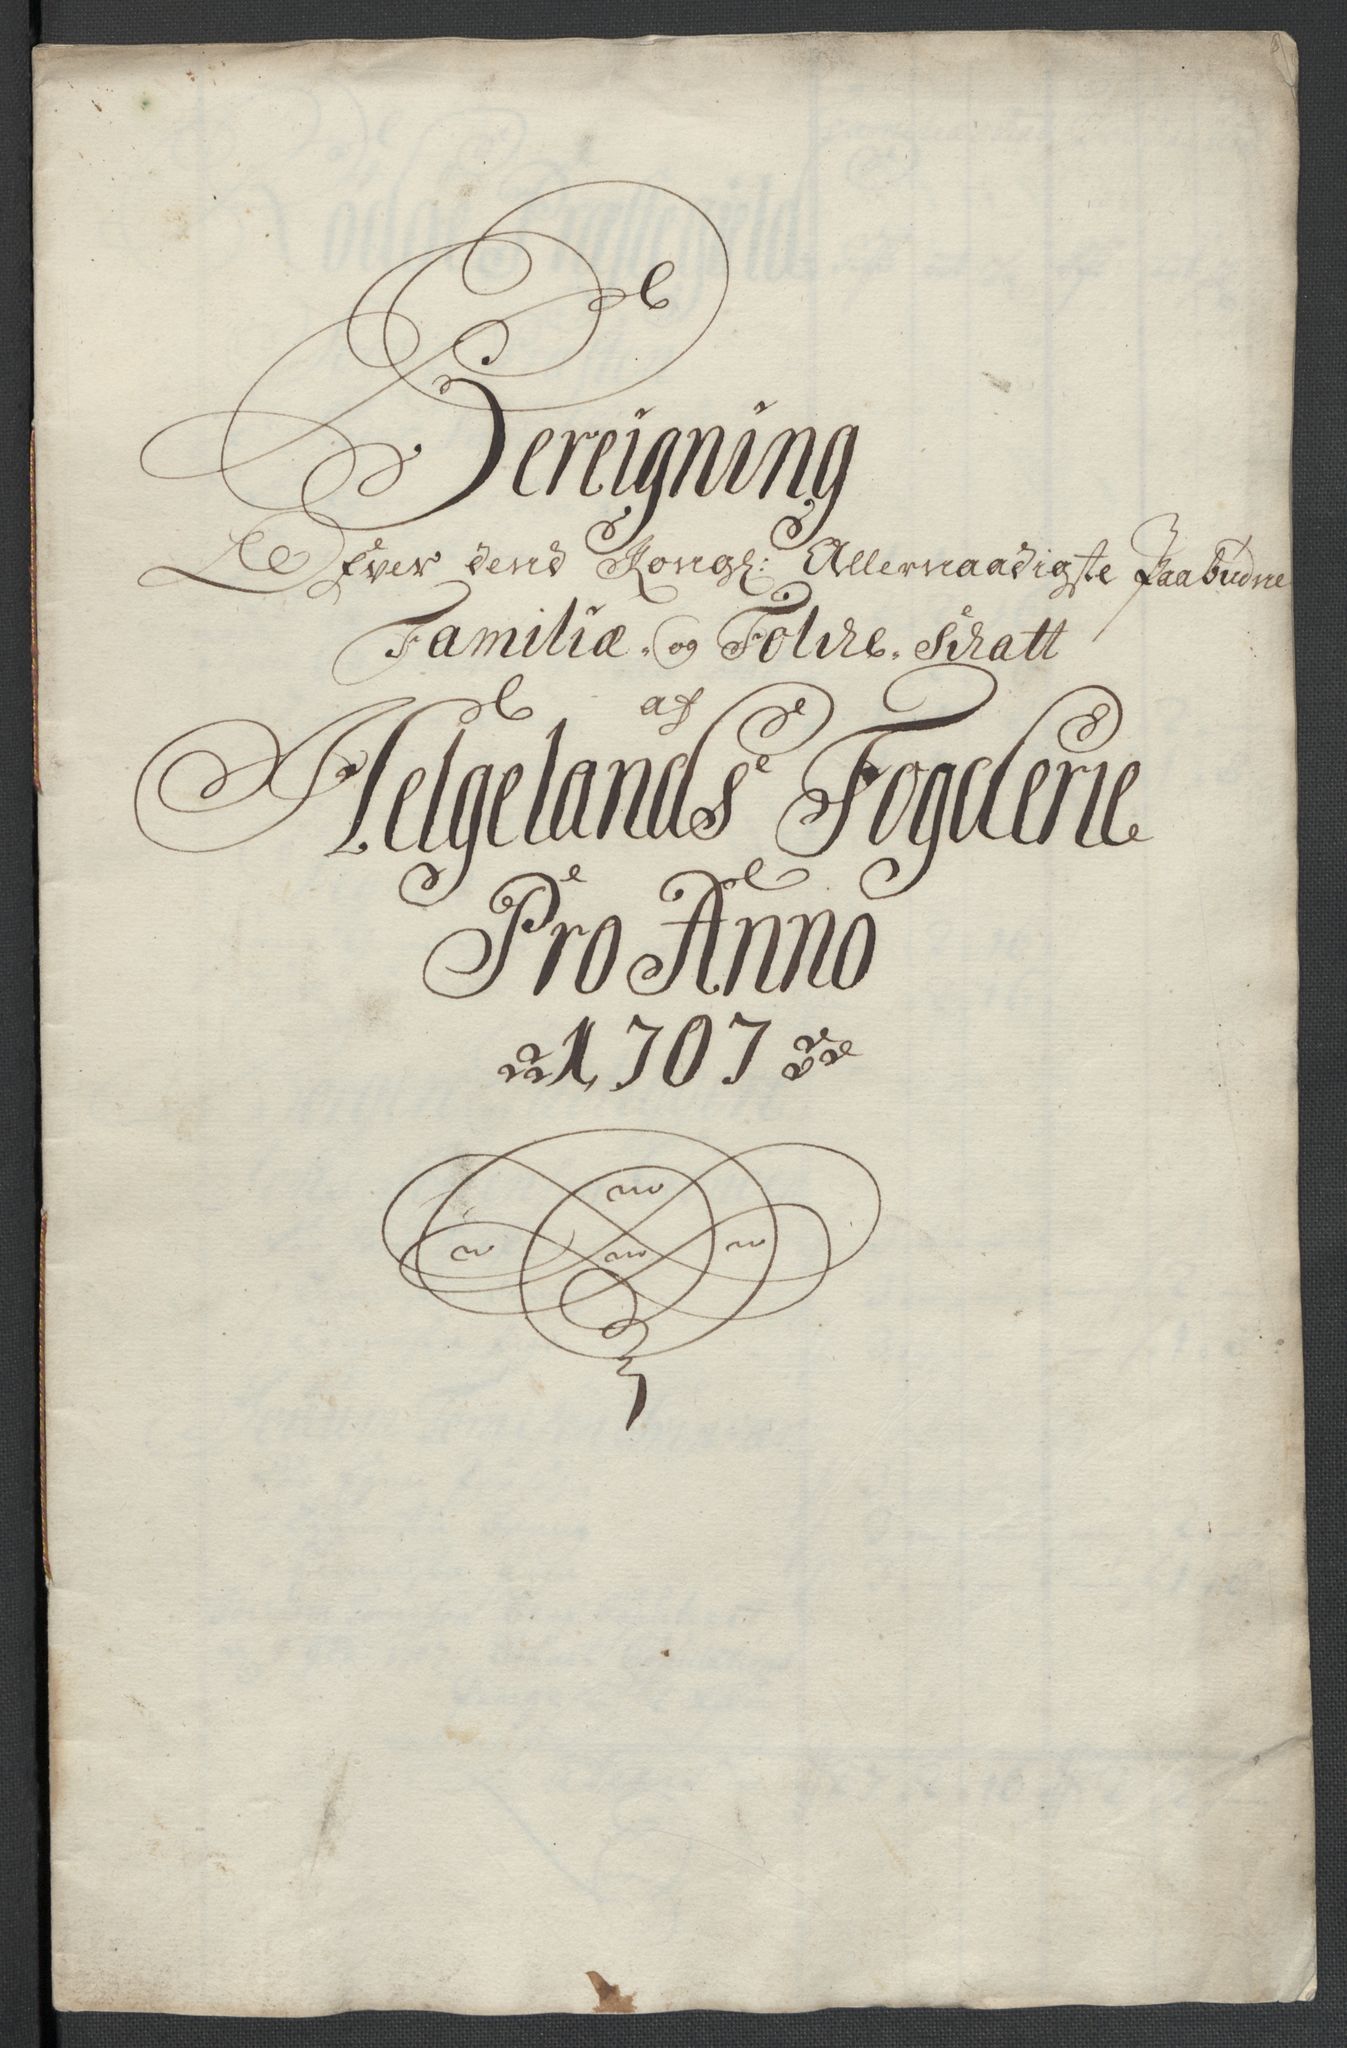 Bereigning
Ofver dend Kongl: Allernaadigste Paabudne
Familiæ- og Folche- Schatt
af
Helgelands Fogderie
Pro Anno
1707